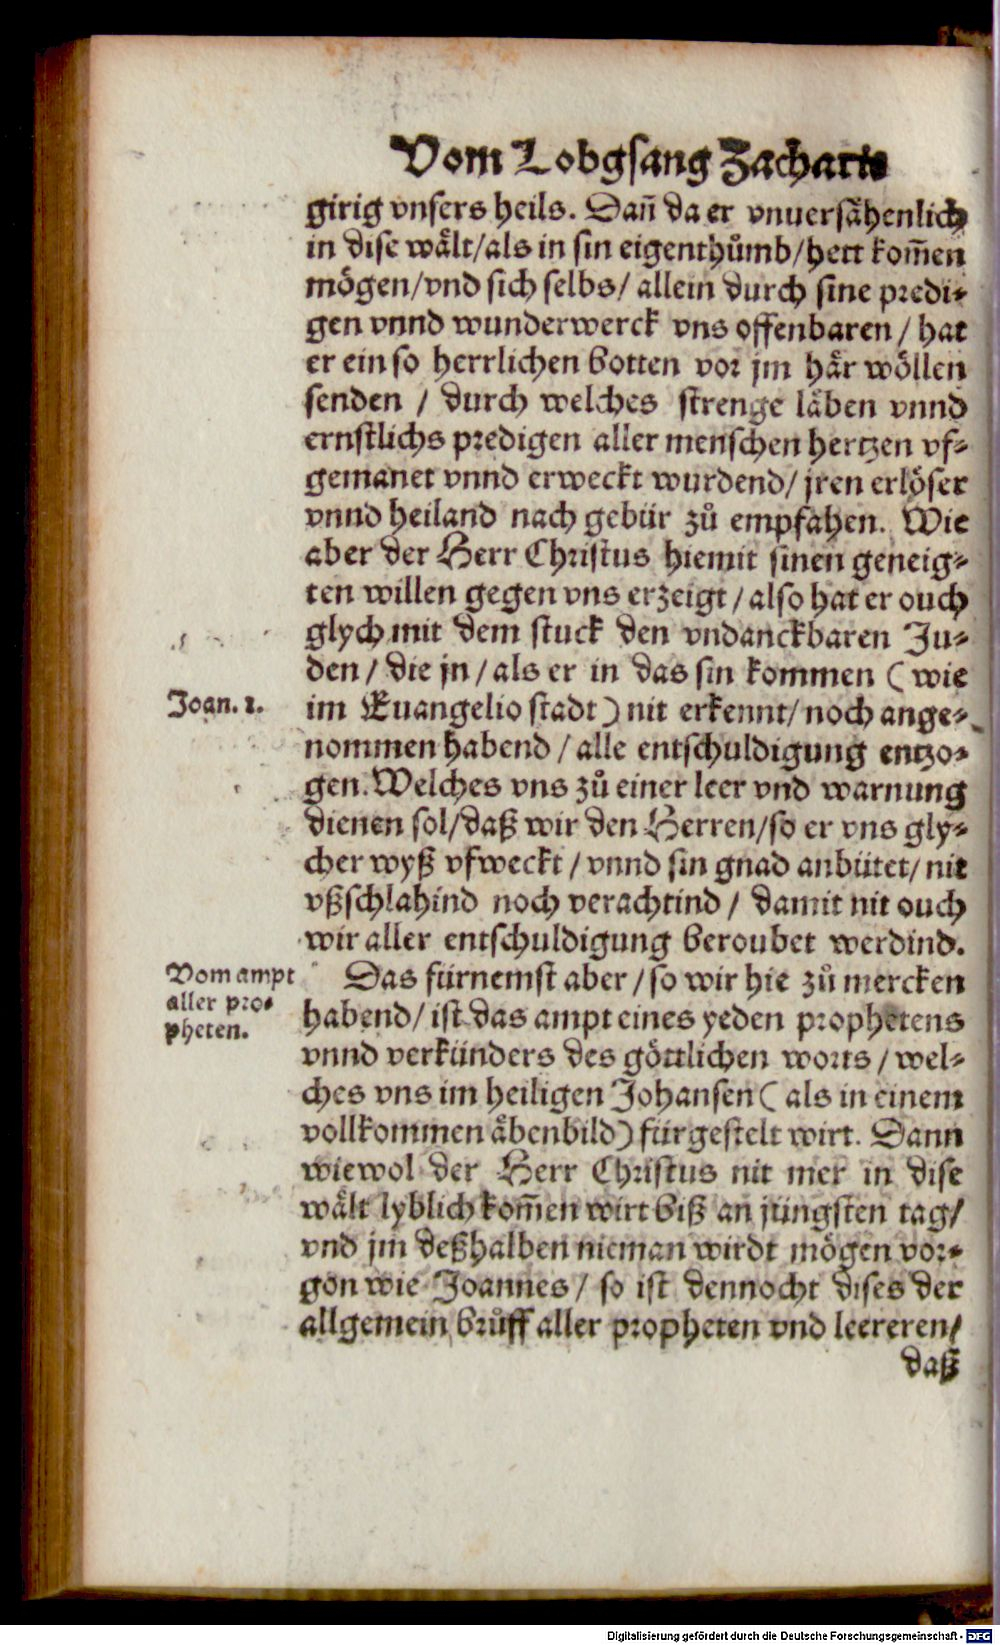 Vom Lobgsang Zacharie
girig vnsers heils. Dañ da er vnuersåhenlich
in dise wålt/als in sin eigenthůmb/hett kom̃en
mögen/vnd sich selbs/ allein durch sine predi-
gen vnnd wunderwerck vns offenbaren / hat
er ein so herrlichen botten vor jm hår wöllen
senden / durch welches strenge låben vnnd
ernstlichs predigen aller menschen hertzen vf-
gemanet vnnd erweckt wurdend/ jren erlöser
vnnd heiland nach gebür zů empfahen. Wie
aber der Herr Christus hiemit sinen geneig-
ten willen gegen vns erzeigt / also hat er ouch
glych mit dem stuck den vndanckbaren Ju-
den / die jn / als er in das sin kommen ( wie
Joan. 1.
im Euangelio stadt ) nit erkennt/ noch ange-
nommen habend / alle entschuldigung entzo-
gen. Welches vns zů einer leer vnd warnung
dienen sol/daß wir den Herren/so er vns gly-
cher wyß vfweckt / vnnd sin gnad anbütet/ nit
vßschlahind noch verachtind / damit nit ouch
wir aller entschuldigung beroubet werdind.
Vom ampt
aller pro-
pheten.
Das fürnemst aber / so wir hie zů mercken
habend/ ist das ampt eines yeden prophetens
vnnd verkünders des göttlichen worts / wel-
ches vns im heiligen Johansen ( als in einem
vollkommen åbenbild ) fürgestelt wirt. Dann
wiewol der Herr Christus nit mer in dise
wålt lyblich kom̃en wirt biß an jüngsten tag/
vnd jm deßhalben nieman wirdt mögen vor-
gon wie Joannes / so ist dennocht dises der
allgemein brůff aller propheten vnd leereren/
daß
Digitalisierung gefördert durch die Deutsche Forschungsgemeinschaft - DFG